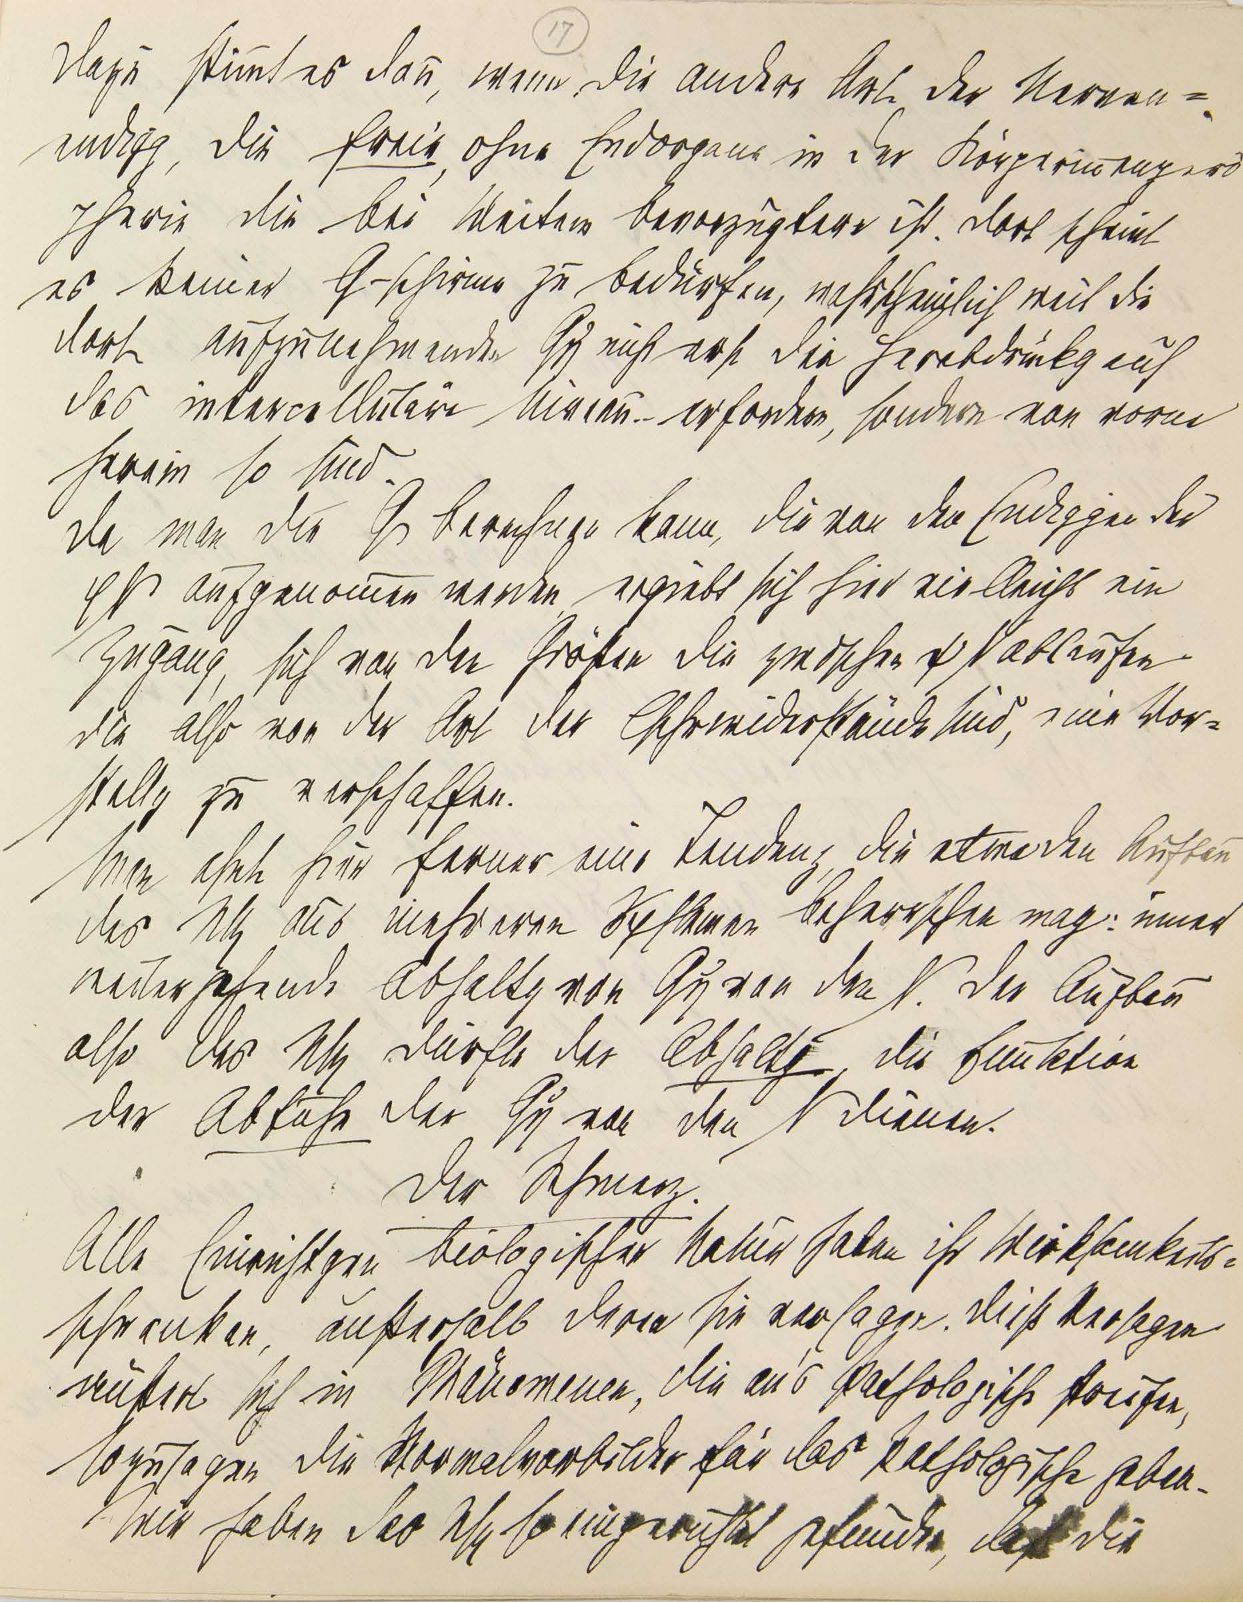 17
Dazu stim̅t es dan̅, wenn die andere Art der Nerven=
endigg, die freie, ohne Endorgane in der Körperin̅enperi
pherie die bei Weitem bevorzugtere ist. Dort scheint
es keiner Q-schirme zu bedürfen, wahrscheinlich weil die
dort aufzunehmenden Qη nicht erst die Herabdrückg auf
das intercelluläre Niveau erfordern, sondern von vorne
herein so sind.
Da man die Q berechnen kann, die von den Endiggen der
φN aufgenom̅en werden, ergiebt sich hier vielleicht ein
Zugang, sich von den Größen die zwischen ψN ablaufen
die also von der Art der Cschrwiderstände sind, eine Vor=
stellg zu verschaffen.
Man ahnt hier ferner eine Tendenz, die etwa den Aufbau
des Nsy aus mehreren Systemen beherrschen mag: im̅er
weitergehende Abhaltg von Qη von den N. Der Aufbau
also des Nsy dürfte der Abhaltg, die Funktion
der Abfuhr der Qη von den N dienen.
Der Schmerz.
Alle Einrichtgen biologischer Natur haben ihr Wirksamkeits=
schranken, außerhalb deren sie versagen. Dieß Versagen
äußert sich in Phänomenen, die an's Pathologische streifen,
sozusagen die Normalvorbilder für das Pathologische geben.
Wir haben das Nsy so eingerichtet gefunden, daß die